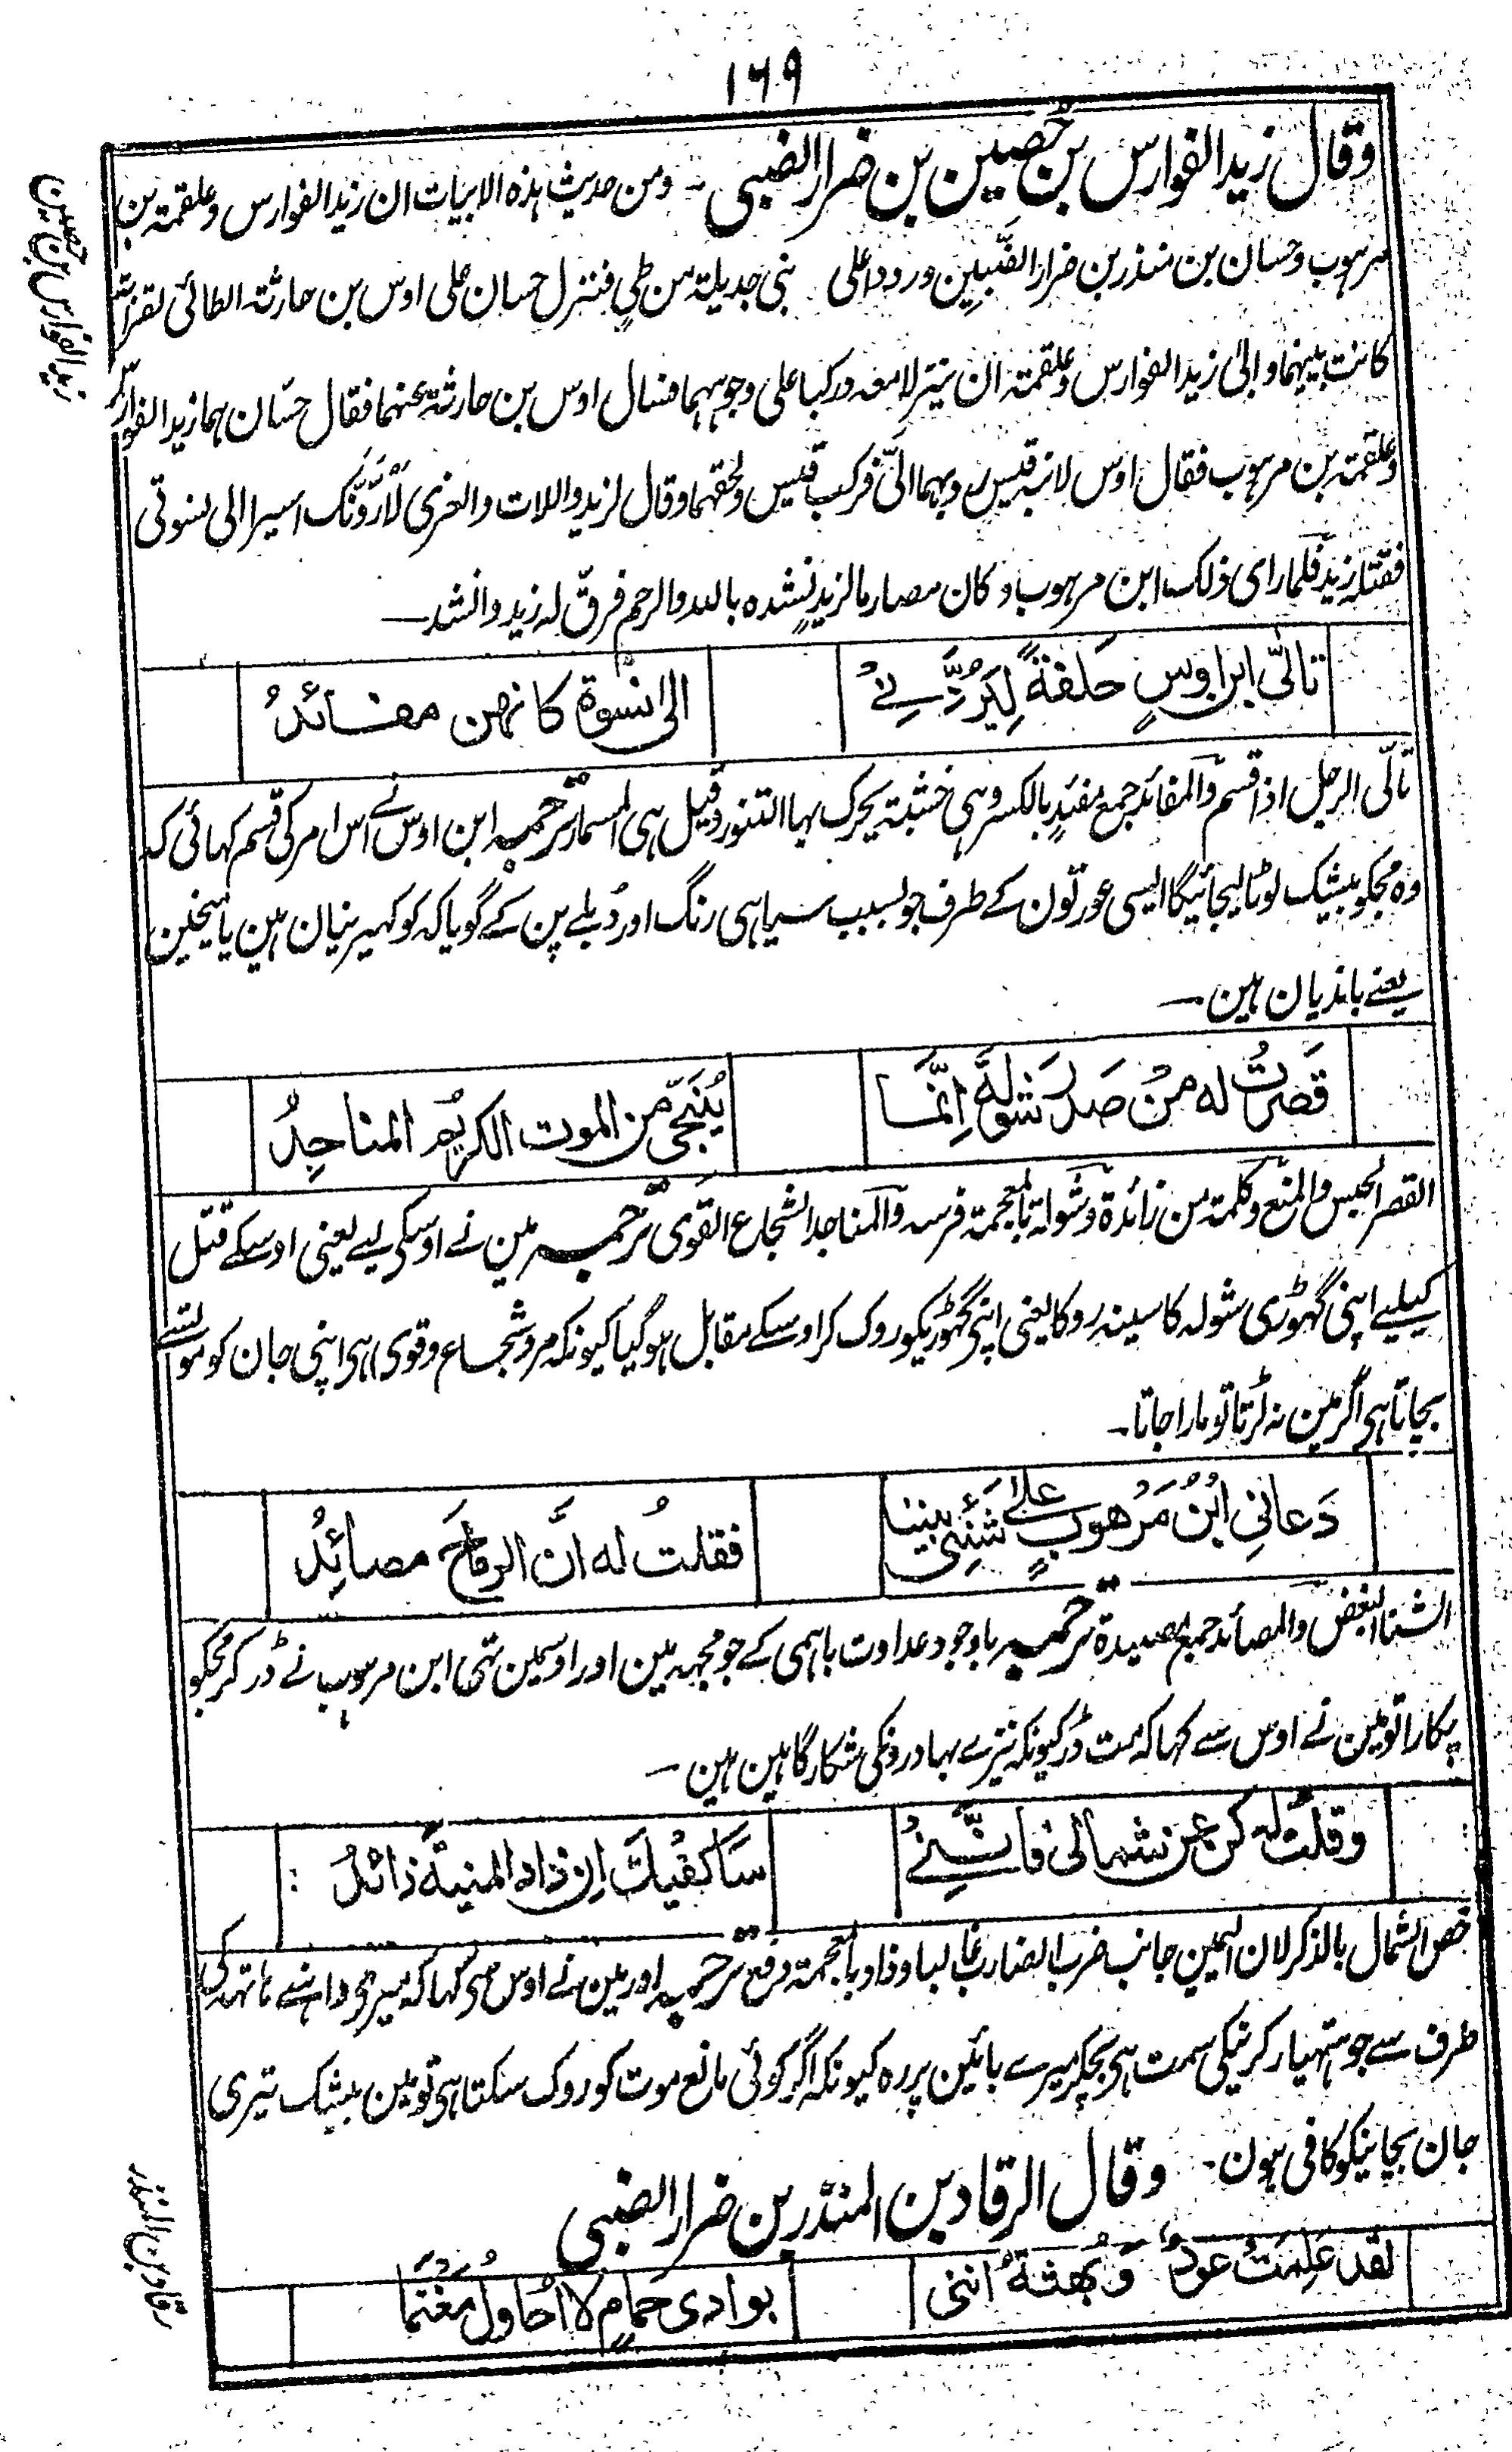 ۱۶۹
وقال زید الفوارس بن حصین بن ضرار الضبی ۔ ومن حدیث ہذہ الابیات ان زید الفوارس وعلقمۃ بن
مرہوب وحسان بن منذر بن ضرار الضَّبیین وردوا علی بنی جدیلۃ من طیٍ فنزل حسان علی اوس بن حارثۃ الطائی لقرابۃ
کانت بینہما وابیٰ زید الفوارس وعلقمۃ ان ینزلا معہ ورکبا علی وجوہہما فسال اوس بن حارثۃ عنہما فقال حسّان ہما زید الفوارس
وعلقمۃ بن مرہوب فقال اوس لابنہ قیس ردہما الیّ فرکب قیس ولحقہما وقال لزید واللات والعزی لَاَرُدَّنَّک اسیرا الی نسوتی
فقتلہ زید فلما رای ذلک ابن مرہوب وکان مصارما لزید نشدہ باللہ والرحم فرقّ لہ زید وانشد —
تالّی ابن اوسٍ حَلفۃً لِیَرُدَّنِی الی نسوۃ کانهن مفائدُ
تألّی الرجل اذا قسم والمفائد جمع مفئدٍ بالکسر وہی خشبۃ یحرک بہا التنور وقیل ہی المسمار ترجمہ ابن اوس نے اس امر کی قسم کہائی کہ
وہ مجکو بیشک لوٹا لیجائیگا ایسی عورتون کے طرف جو بسبب سیاہی رنگ اور دُبلے پن کے گویا کہ کو کہیرنیان ہین یا میخین
یعنے باندیان ہین —
قَصَرتُ له مِنْ صَدرِ شَوْلَةَ اِنَّمَا یُنَجِّی مِن الموت الکریمُ المناجِدُ
القصر الحبس والمنع وکلمۃ من زائدۃ وشولۃ بالمعجمۃ فرسہ والمناجد الشجاع القوی ترجمہ مین نے اوسکی لیے یعنی اوسکے قتل
کیلیے اپنی گہوڑی شولہ کا سینہ روکا یعنی اپنی گہوڑیکو روک کر اوسکے مقابل ہو گیا کیونکہ مرد شجاع وقوی ہی اپنی جان کو موت سے
بچاتا ہی اگر مین نہ لڑتا تو مارا جاتا۔
دَعانِی ابْنُ مَرْهوبٍ عَلیٰ شَنْئِ بَینِنا فقلتُ له انَّ الرماحَ مصائِدُ
الشنا البغض والمصائد جمع مصیدۃ ترجمہ باوجود عداوت باہمی کے جو مجہہ مین اور اوسمین تہی ابن مرہوب نے ڈر کر مجکو
پکارا تو مین نے اوس سے کہا کہ مت ڈر کیونکہ نیزے بہادرونکی شکارگاہین ہین —
وقلتُ له کن عن شمالی فاِنَّنِی سَاَکفیكَ اِن ذاد المنیةَ ذائدُ
خص الشمال بالذکر لان الیمین جانب ضرب الضارب غالبا وذاد بالمعجمۃ دفع ترجمہ اور مین نے اوس سی کہا کہ میری داہنے ہاتہہ کی
طرف سے جو ہتہیار کرنیکی سمت ہی بچکر میرے بائین پر رہ کیونکہ اگر کوئی مانع موت کو روک سکتا ہی تو مین بیشک تیری
جان بچانیکو کافی ہون۔ وقال الرقاد بن المنذر بن ضرار الضبی
لقد عَلِمَتْ عوذٌ وَبُهْثَةُ اننی بوادی حَمامٍ لا اُحَاولُ مَغْنَمَا
زید الفوارس بن حصین
رقاد بن المنذر